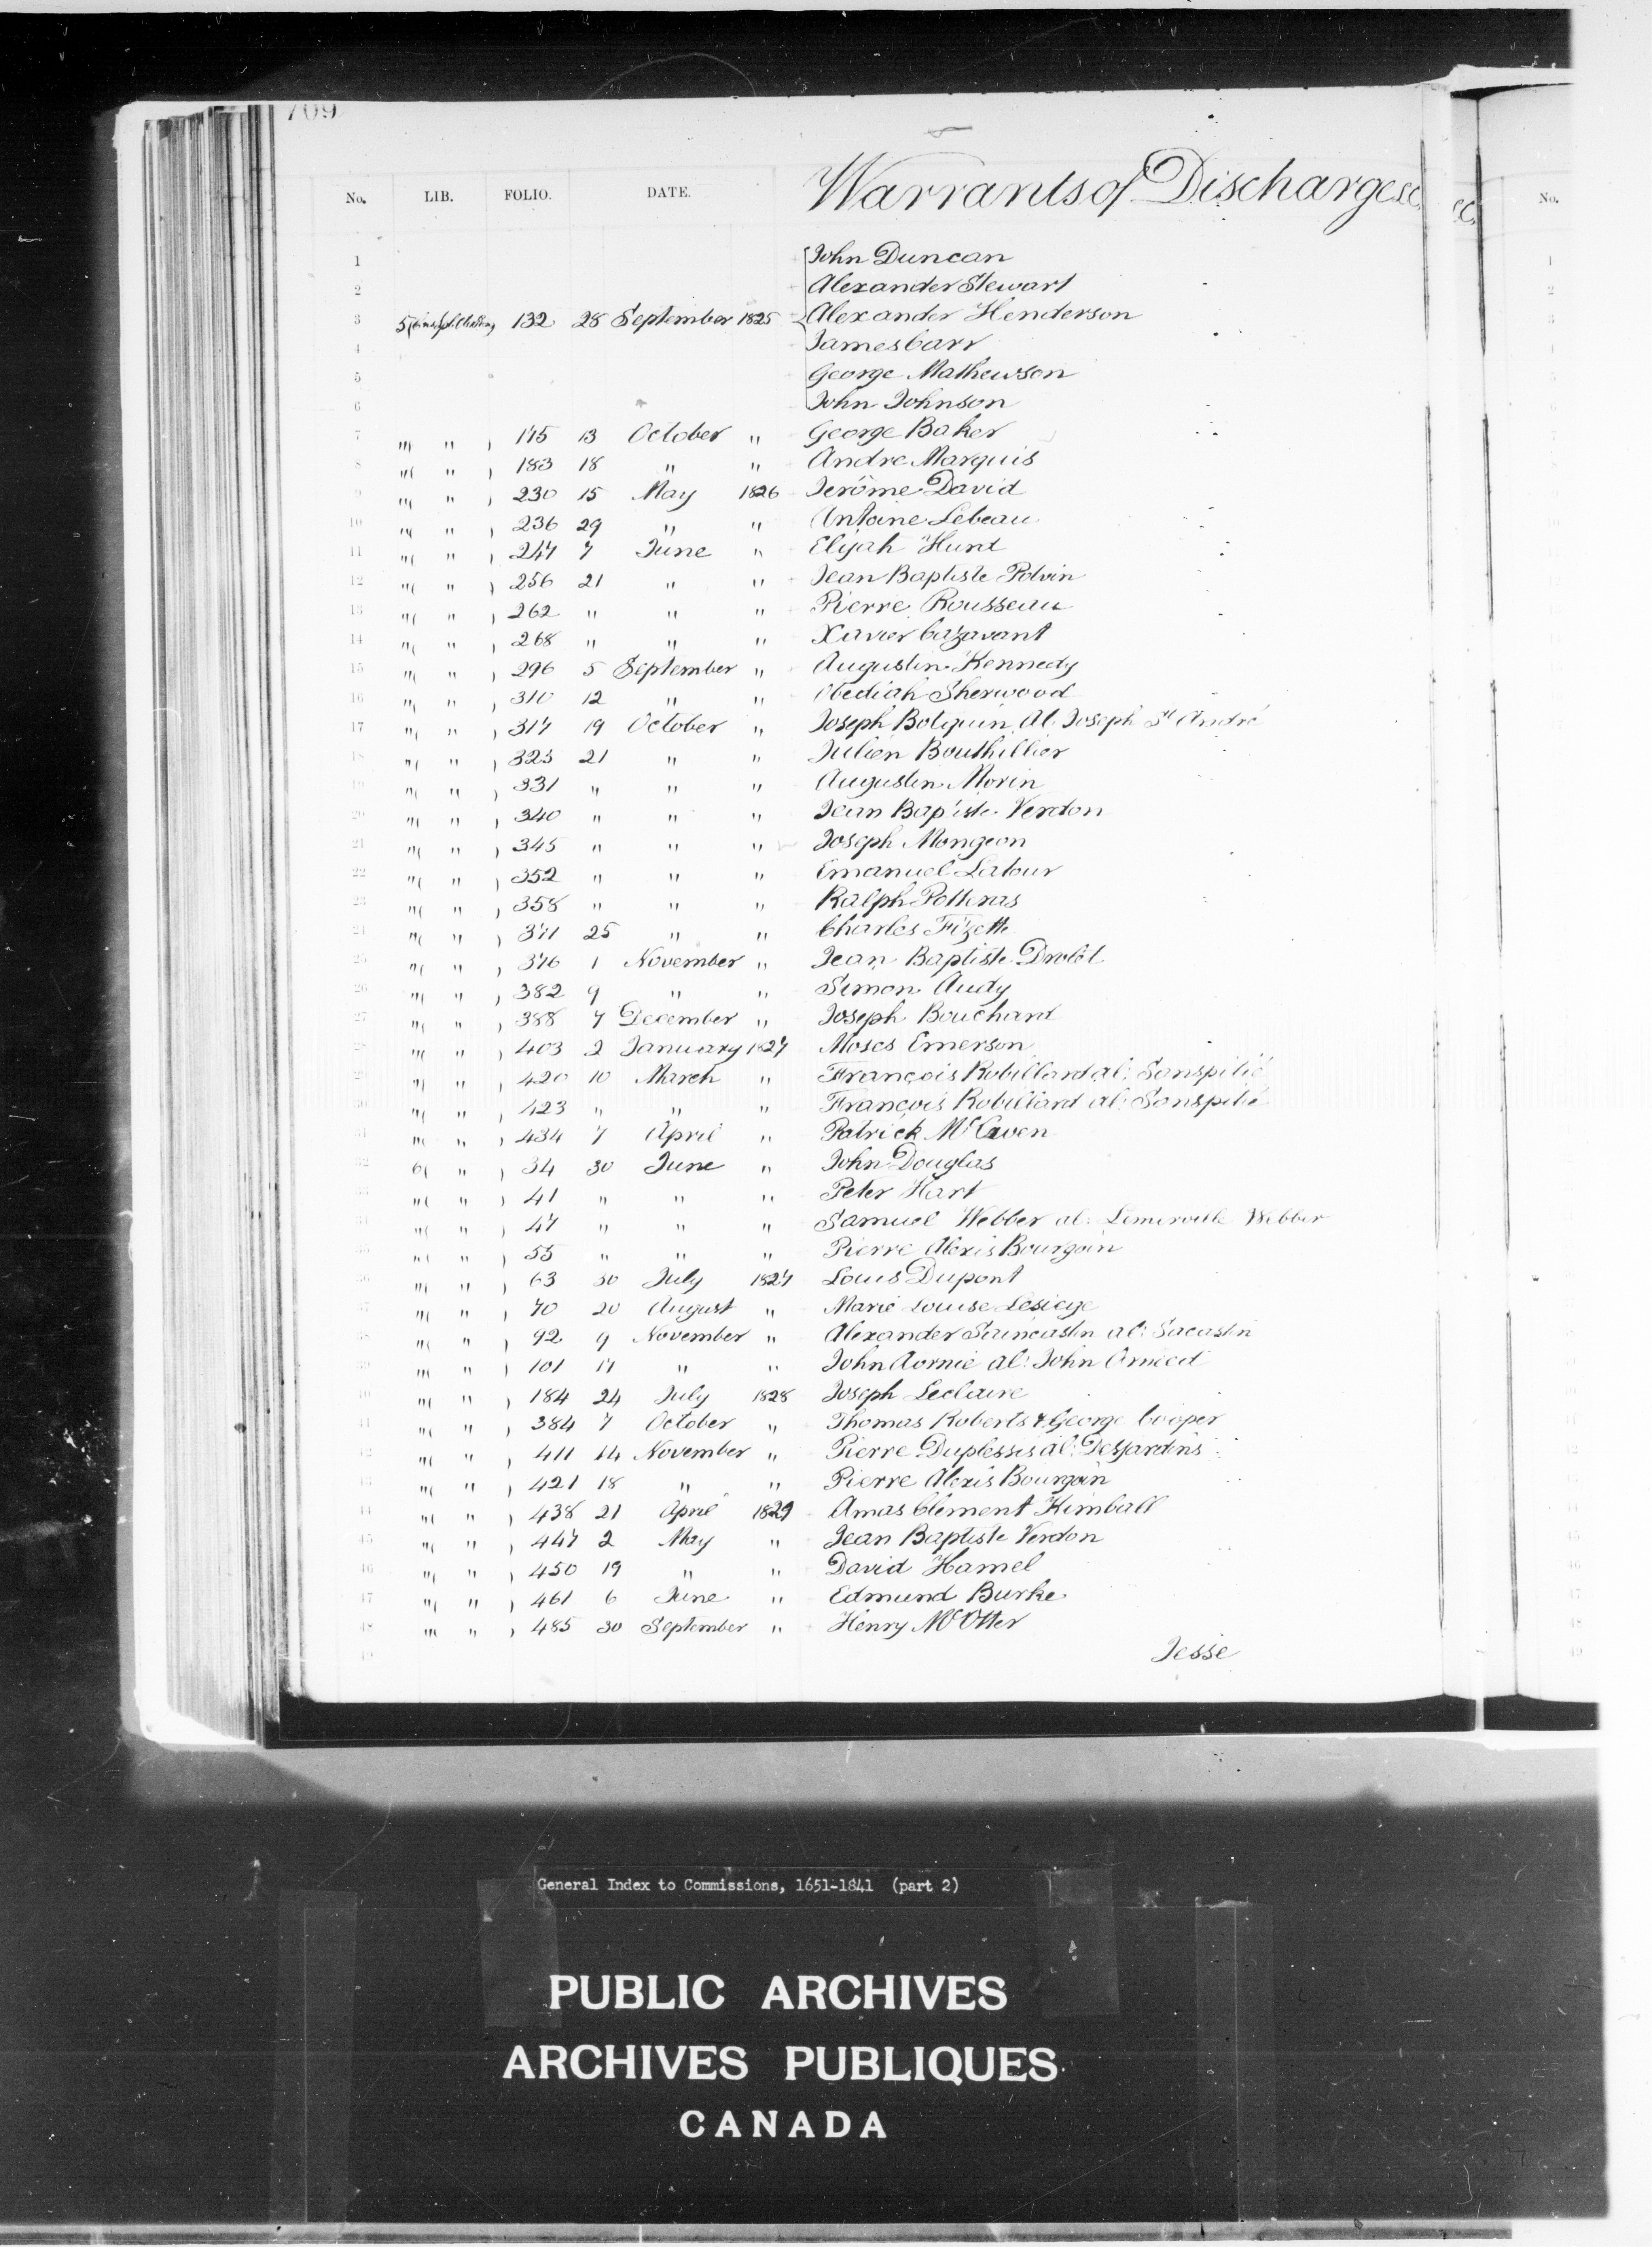 709
No. LIB. FOLIO. DATE. Warrants of Discharge &c. &c. No.
1 John Duncan
2 Alexander Stewart
3 5 132 28 September 1825 Alexander Henderson
4 James Carr
5 George Mathewson
6 John Johnson
7 " ( " ) 175 13 October " George Baker
8 " ( " ) 183 18 " " Andre Marquis
9 " ( " ) 230 15 May 1826 Jerôme David
10 " ( " ) 236 29 " " Antoine Lebeau
11 " ( " ) 247 7 June " Elijah Hunt
12 " ( " ) 256 21 " " Jean Baptiste Potvin
13 " ( " ) 262 " " " Pierre Rousseau
14 " ( " ) 268 " " " Xavier Cazavant
15 " ( " ) 296 5 September " Augustin Kennedy
16 " ( " ) 310 12 " " Obediah Sherwood
17 " ( " ) 317 19 October " Joseph Bolquin Al. Joseph St. André
18 " ( " ) 325 21 " " Julien Bouthillier
19 " ( " ) 331 " " " Augustin Morin
20 " ( " ) 340 " " " Jean Baptiste Verdon
21 " ( " ) 345 " " " Joseph Mongeon
22 " ( " ) 352 " " " Emanuel Latour
23 " ( " ) 358 " " " Ralph
24 " ( " ) 371 25 " " Charles Fizette
25 " ( " ) 376 1 November " Jean Baptiste Drolet
26 " ( " ) 382 9 " " Simon Audy
27 " ( " ) 388 7 December " Joseph Bouchard
28 " ( " ) 403 2 January 1827 Moses Emerson
29 " ( " ) 420 10 March " François Robillard al: Sanspitié
30 " ( " ) 423 " " " François Robillard al: Sanspitié
31 " ( " ) 434 7 April " Patrick
32 6 ( " ) 34 30 June " John Douglas
33 " ( " ) 41 " " " Peter Hart
34 " ( " ) 47 " " " Samuel Webber al: Webber
35 " ( " ) 55 " " " Pierre Alexis Bourgoin
36 " ( " ) 63 30 July 1827 Louis Dupont
37 " ( " ) 70 20 August " Marie Louise
38 " ( " ) 92 9 November " Alexander Saincastin al: Sacastin
39 " ( " ) 101 17 " " John al: John
40 " ( " ) 184 24 July 1828 Joseph Leclaire
41 " ( " ) 384 7 October " Thomas Roberts & George Cooper
42 " ( " ) 411 14 November " Pierre Duplessis al: Desjardins
43 " ( " ) 421 18 " " Pierre Alexis Bourgoin
44 " ( " ) 438 21 April 1829 Amas Clement Kimball
45 " ( " ) 447 2 May " Jean Baptiste Verdon
46 " ( " ) 450 19 " " David Hamel
47 " ( " ) 461 6 June " Edmund Burke
48 " ( " ) 485 30 September " Henry McOtter
49 Jesse
General Index to Commissions, 1651-1841 (part 2)
PUBLIC ARCHIVES
ARCHIVES PUBLIQUES
CANADA